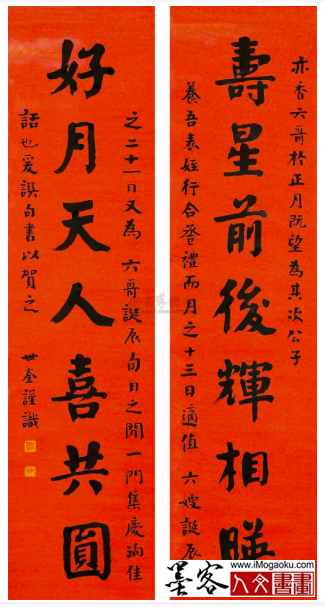 亦香六哥於正月既望為其次公子
壽星前後輝相暎
養吾表姪行合巹禮而月之十三日適值 六嫂誕辰
之二十一日又為 六哥誕辰旬日之間一門集慶洵佳
好月天人喜共圓
話也爰譔句書以賀之 世奎謹識
www.iMogaoku.com
墨客
人文書畫